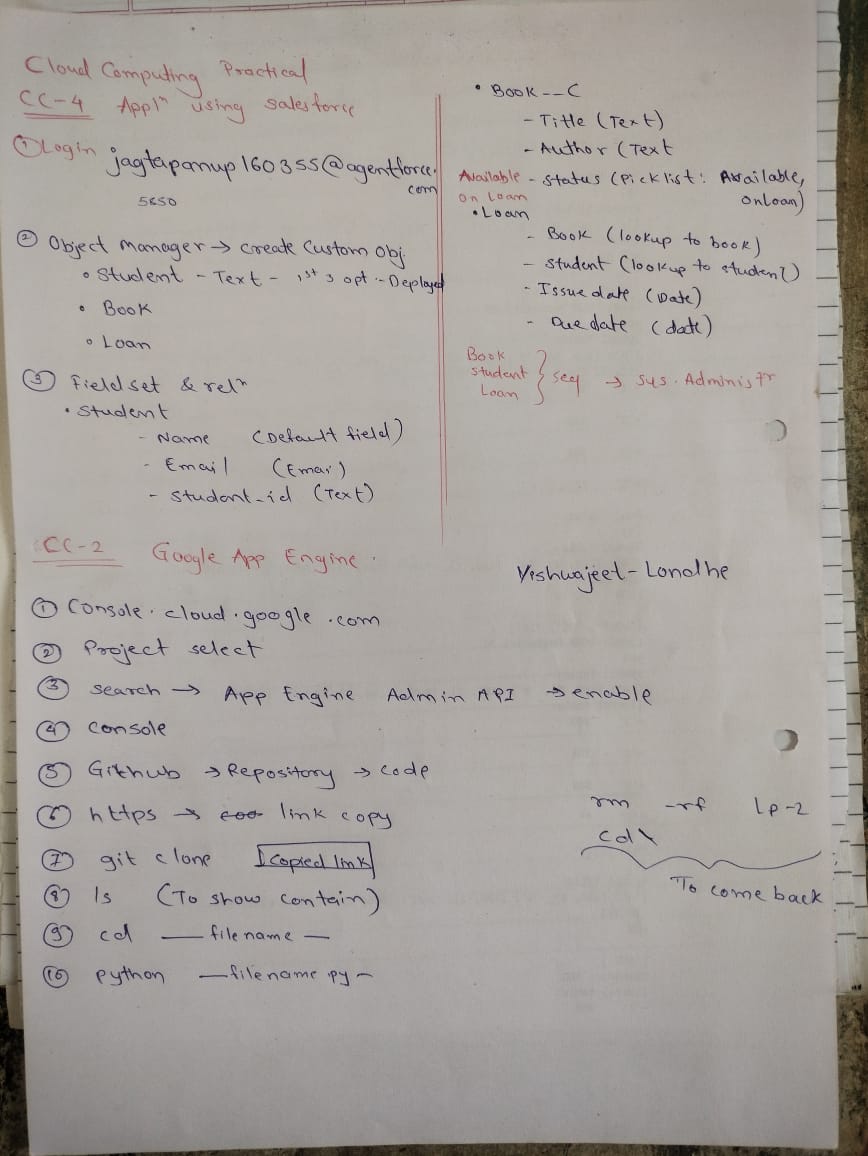 Cloud Computing Practical
CC-4 Appln using salesforce
① Login jagtapanup160355@agentforce.
com
5650
② Object manager → create custom obj.
• Student - Text - 1st 3 opt - Deployed
• Book
• Loan
③ Field set & reln
• Student
- Name (Default field)
- Email (Emai)
- Student_id (Text)
• Book--C
- Title (Text)
- Author (Text
Available - status (Picklist: Available,
On Loan onLoan)
• Loan
- Book (lookup to book)
- student (lookup to student)
- Issue date (Date)
- Due date (date)
Book
student } → sys. Administr
Loan
CC-2 Google App Engine.
Vishwajeet-Londhe
① Console.cloud.google.com
② Project select
③ search → App Engine Admin API → enable
④ console
⑤ Github → Repository → code
⑥ https → link copy
⑦ git clone [copied lmk]
⑧ ls (To show contain)
⑨ cd — file name —
⑩ python — filename py —
rm -rf lp-2
cd \
To come back